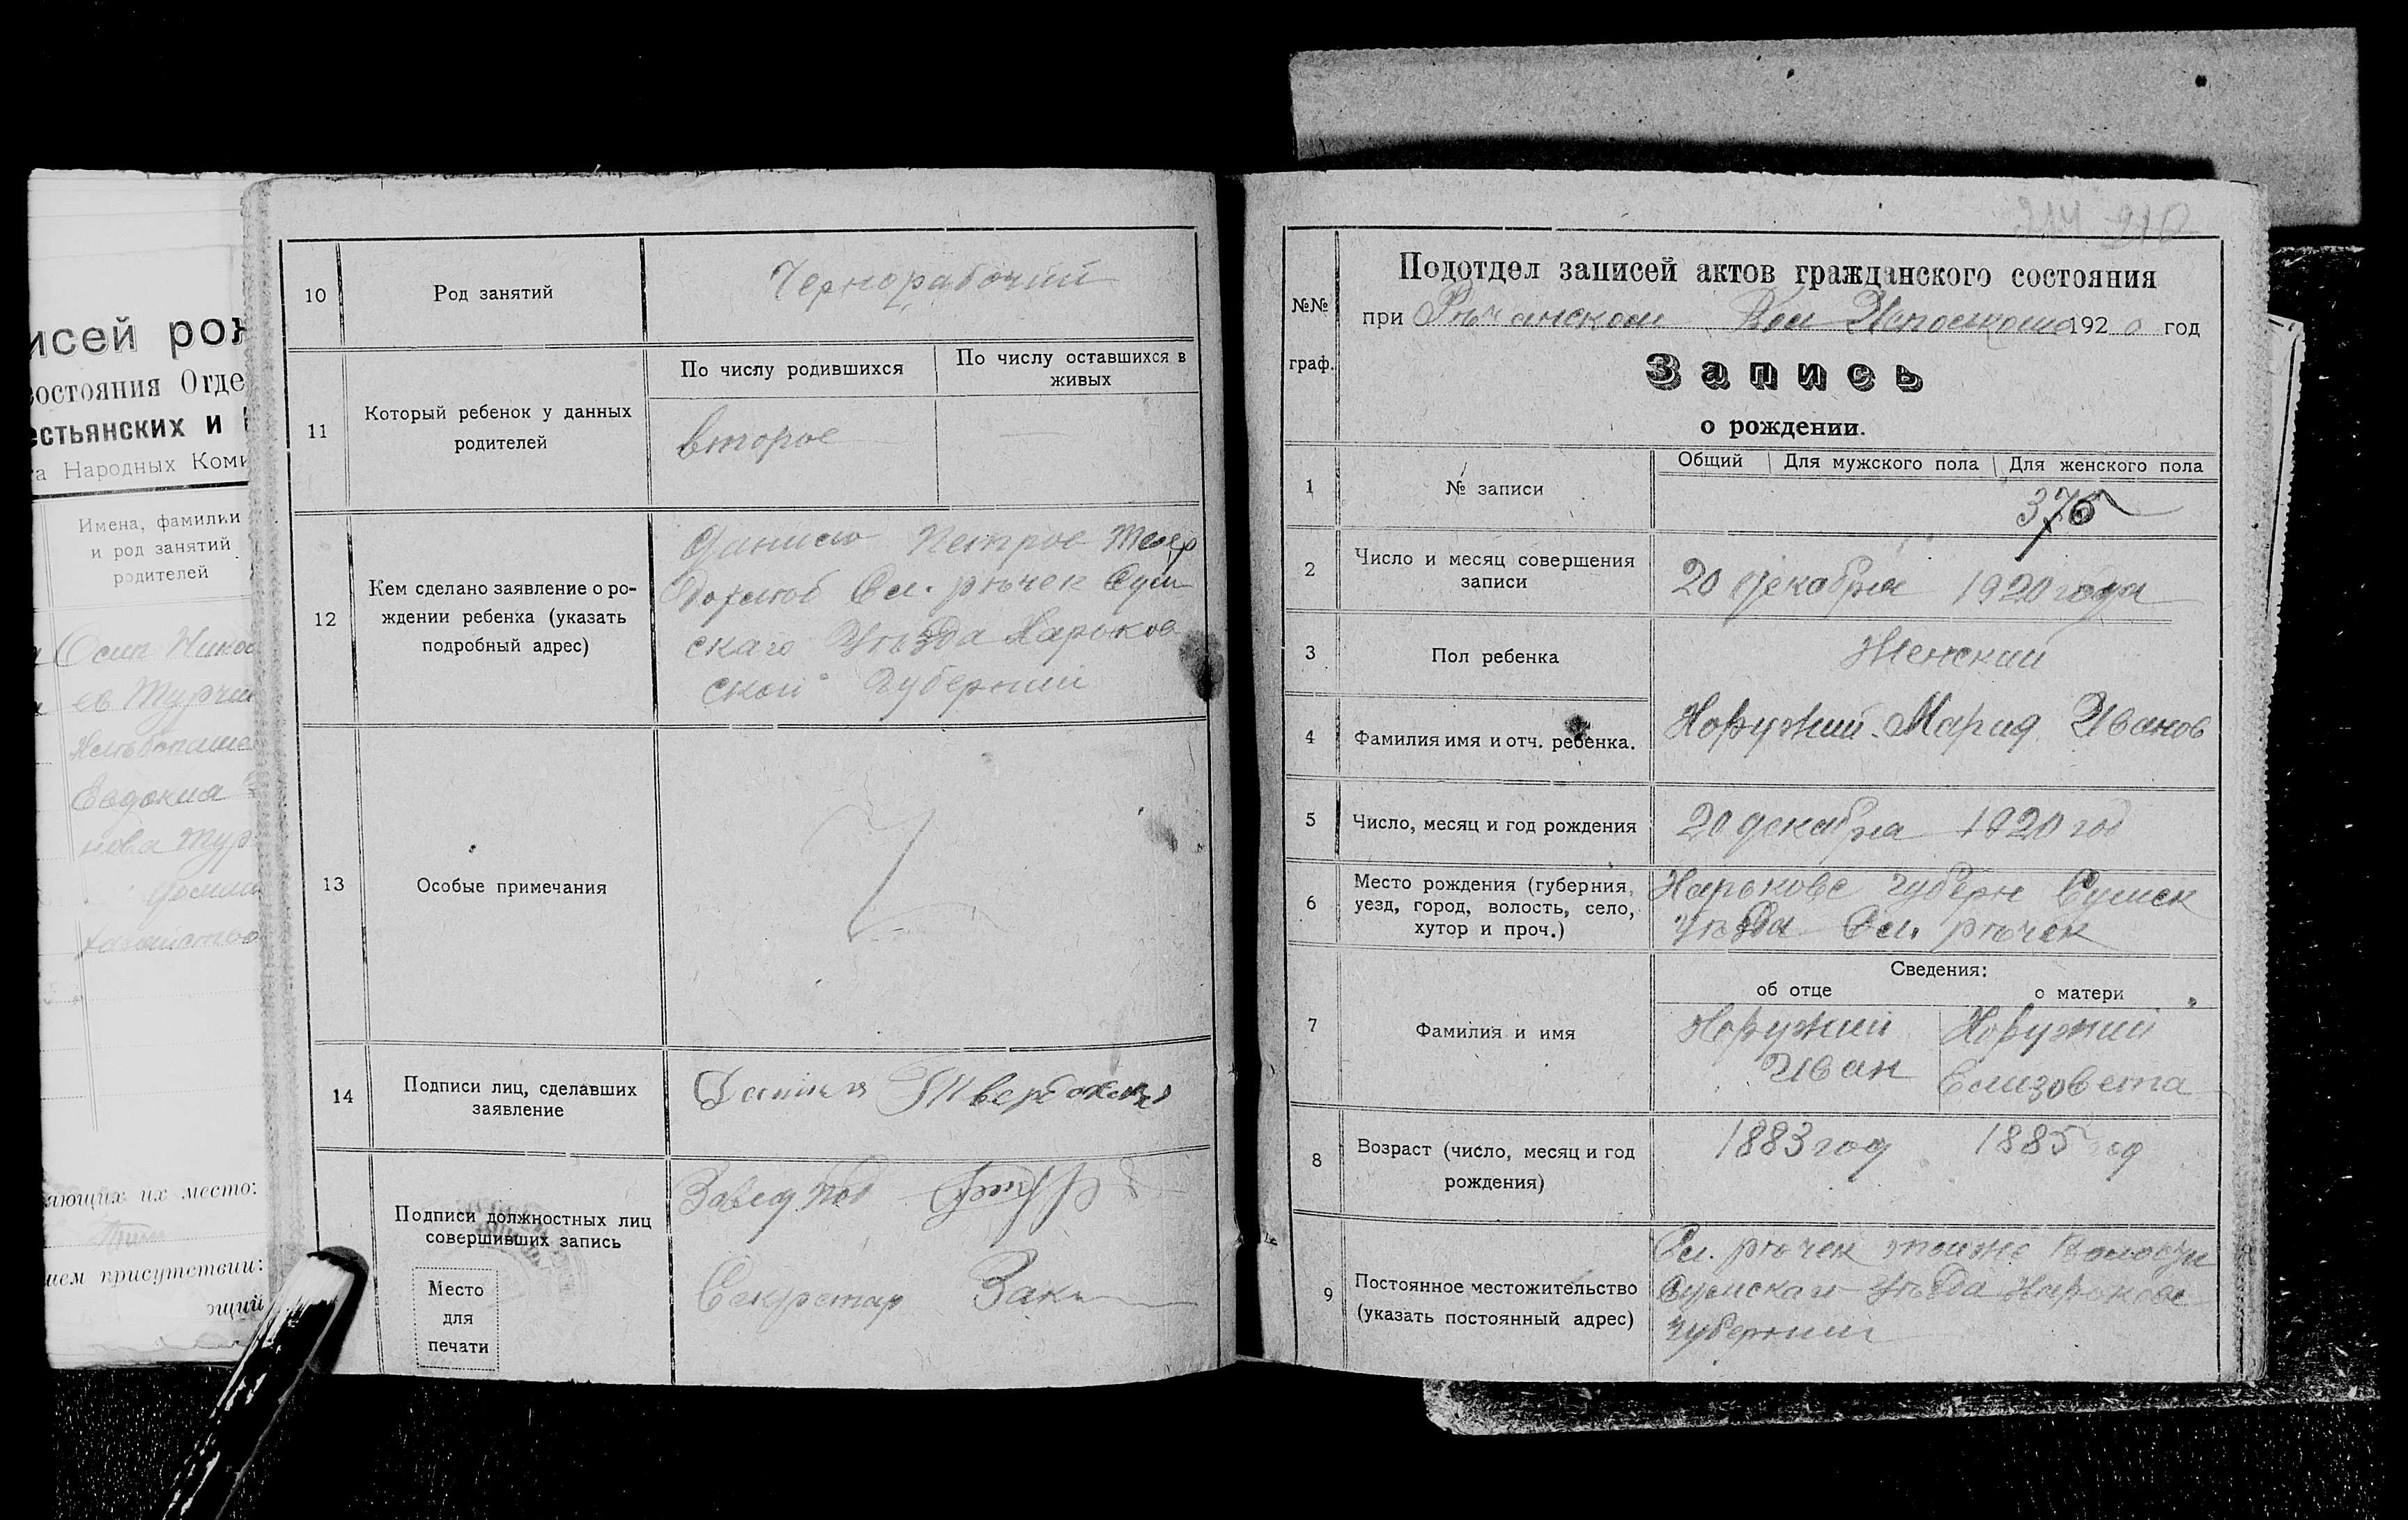 исей рож
состояния Отде
естьянских и
та Народных Коми
Имена, фамилии
и род занятий
родителей
Осип Никол
ев Турчин
Хлѣбопаше
Евдокия
нова Тур
домаш
хазайство
яющих их место:
ием присутствии:
ощий
10
Род занятий
Чернорабочий
11
Который ребенок у данных
родителей
По числу родившихся
По числу оставшихся в
живых
второе
12
Кем сделано заявление о ро-
ждении ребенка (указать
подробный адрес)
Данило Петров Твер
Сл. рѣчек Сум
скаго Уѣзда Харьков
ской Губернии
13
Особые примечания
14
Подписи лиц, сделавших
заявление
Подписи должностных лиц
совершивших запись
Завед Под
Секретар
Место
для
печати
214 210
№№
граф.
Подотдел записей актов гражданского состояния
при Рѣчанском Вол Исполкоме 1920 год
Запись
о рождении.
1
№ записи
Общий
Для мужского пола
Для женского пола
376
2
Число и месяц совершения
записи
20 декабря 1920 года
3
Пол ребенка
Женский
4
Фамилия имя и отч. ребенка.
Норужий Мария Иванов
5
Число, месяц и год рождения
20 декабря 1920 год
6
Место рождения (губерния,
уезд, город, волость, село,
хутор и проч.)
Харьковс губерн Сумск
уѣзда Сл. рѣчек
Сведения:
об отце
о матери
7
Фамилия и имя
Норужий
Иван
Норужий
Елизовета
8
Возраст (число, месяц и год
рождения)
1883 год
1885 год
9
Постоянное местожительство
(указать постоянный адрес)
Сл. рѣчек тойже волости
Сумскаго уѣзда Харьковс
губернии